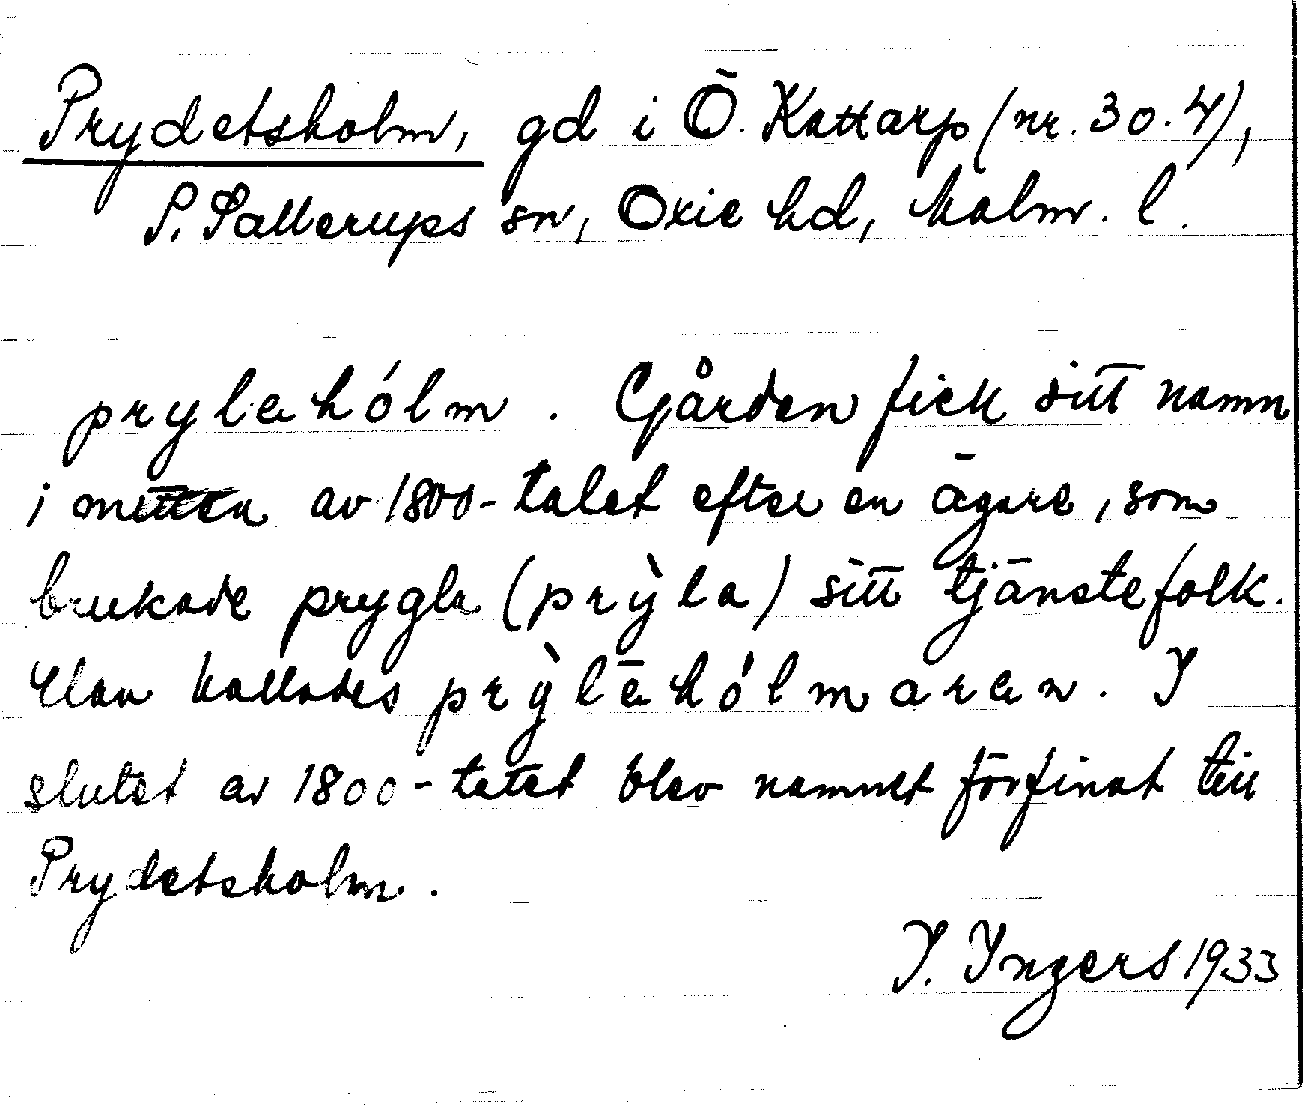 Prydetsholm, gd i Ö. Kattarp (nr. 30.4),
S. Sallerups sn, Oxie hd, Malm. l.
prylahólm. Gården fick sitt namn
i mitten av 1800-talet efter en ägare, som
brukade prygla (prỳla) sitt tjänstefolk.
Han kallades prỳlēhólmaren. I
slutet av 1800-talet blev namnet förfinat till
Prydetsholm.
I. Ingers 1933